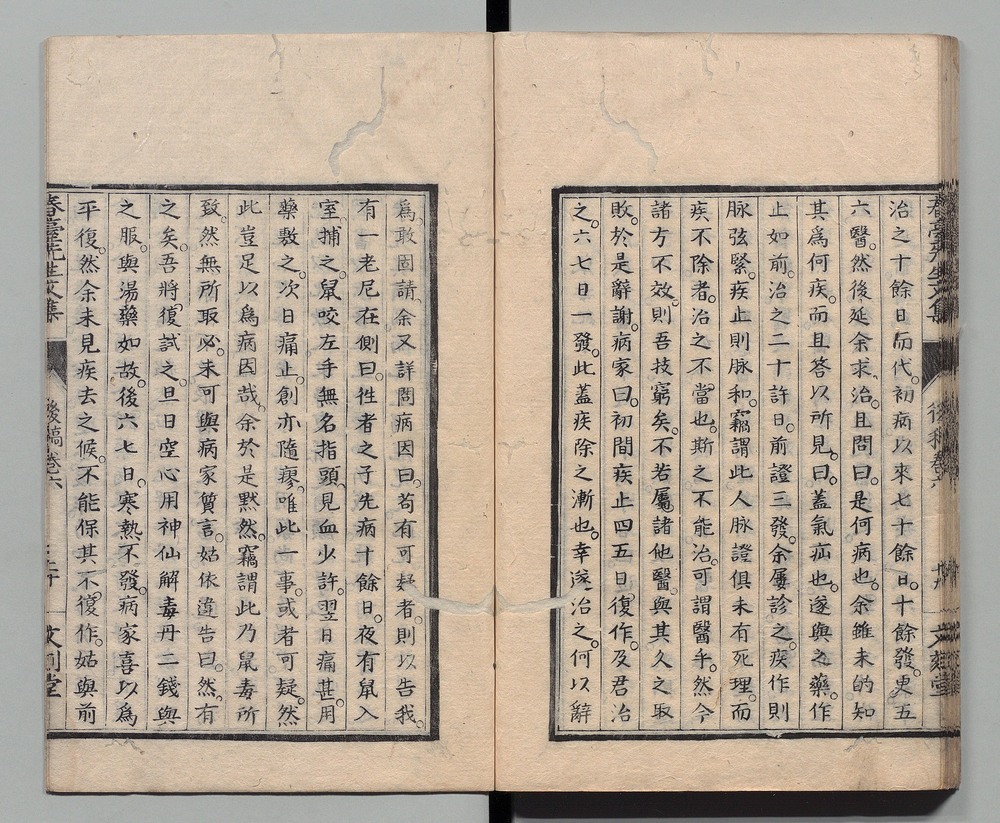 治之十餘日而代。初病以來七十餘日。十餘發。更五
六醫。然後延余求治。且問曰。是何病也。余雖未的知
其爲何疾。而且答以所見。曰。蓋氣疝也。遂與之藥。作
止如前。治之二十許日。前證三發。余屢診之。疾作則
脉弦緊。疾止則脉和。竊謂此人脉證俱未有死理。而
疾不除者。治之不當也。斯之不能治。可謂醫乎。然今
諸方不效。則吾技窮矣。不若屬諸他醫。與其久之取
敗。於是辭謝。病家曰。初間疾止四五日。復作。及君治
之。六七日一發。此蓋疾除之漸也。幸遂治之。何以辭
爲。敢固請。余又詳問病因曰。苟有可疑者。則以告我。
有一老尼在側曰。徃者之子先病十餘日。夜有鼠入
室。捕之。鼠咬左手無名指頭。見血少許。翌日痛甚。用
藥敷之。次日痛止。創亦隨瘳。唯此一事。或者可疑。然
此豈足以爲病因哉。余於是默然。竊謂此乃鼠毒所
致。然無所取必。未可與病家質言。姑依違告曰。然。有
之矣。吾將復試之。旦日空心用神仙解毒丹二錢與
之服。與湯藥如故。後六七日。寒熱不發。病家喜以爲
平復。然余未見疾去之候。不能保其不復作。姑與前
春臺先生文集
後稿卷六